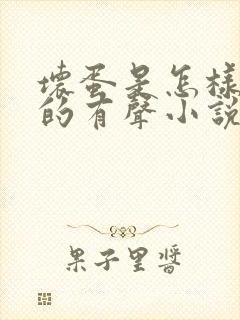 壞蛋是怎樣
的有聲小說
果子里醬